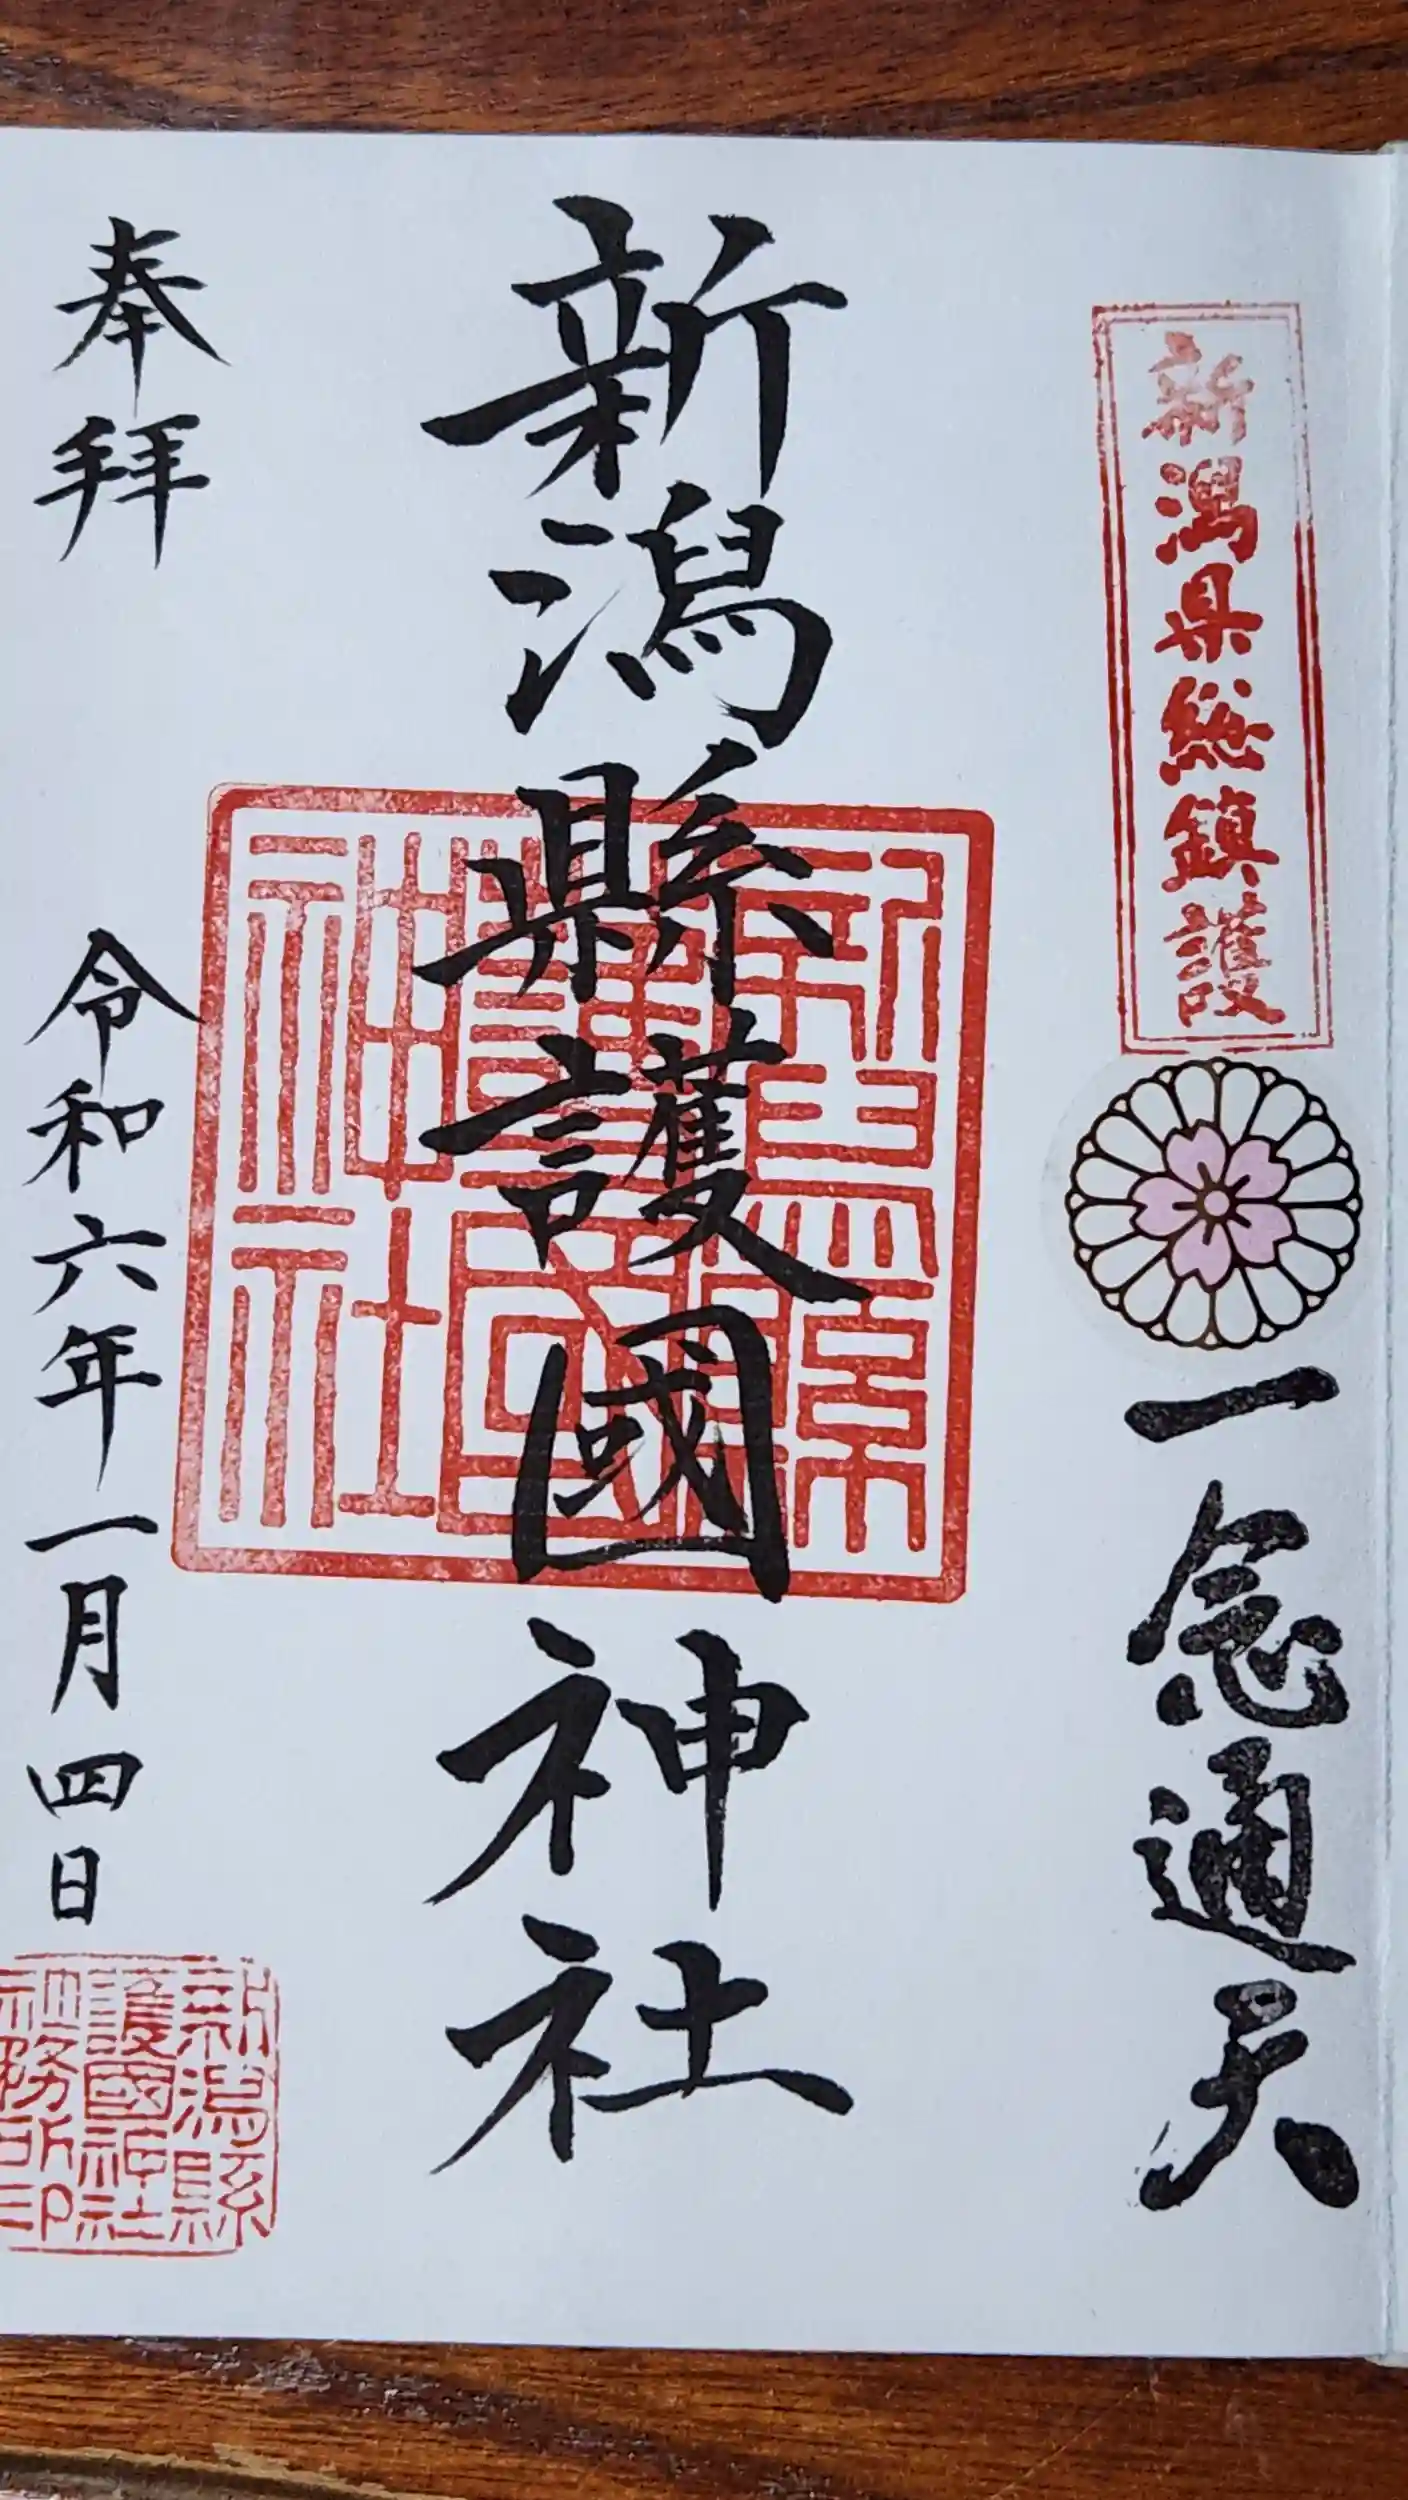 新潟県総鎮護
一念通天
新潟縣護國神社
新潟縣
護國
神社
奉拝
令和六年一月四日
新潟縣
護國神社
社務所印